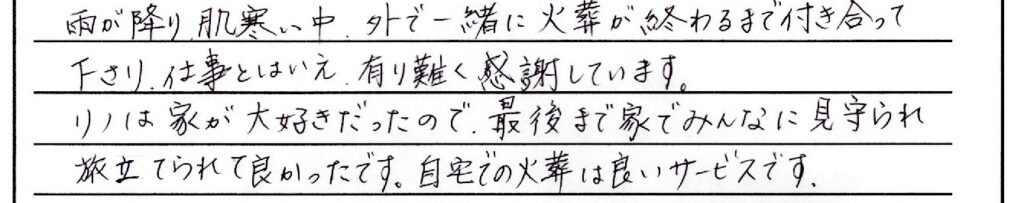 雨が降り、肌寒い中、外で一緒に火葬が終わるまで付き合って
下さり、仕事とはいえ、有り難く感謝しています。
リノは家が大好きだったので、最後まで家でみんなに見守られ
旅立てられて良かったです。自宅での火葬は良いサービスです。